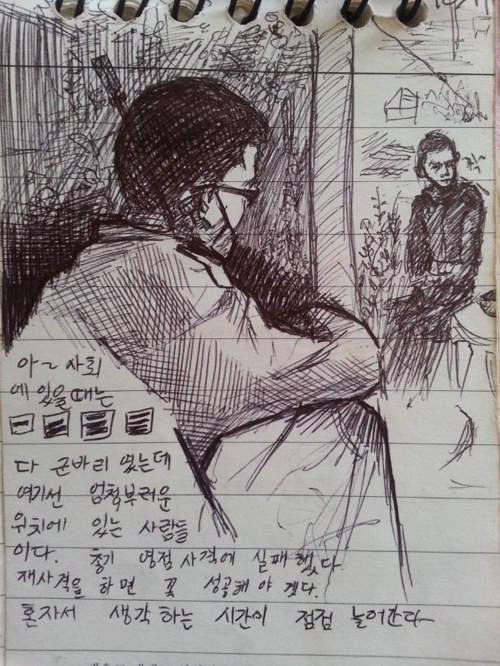 아~ 사회
에 있을때는
다 군바리 였는데
여기선 엄청부러운
위치에 있는 사람들
이다. 총기 영점사격에 실패했다
재사격을 하면 꼭 성공해야 겠다.
혼자서 생각하는 시간이 점점 늘어간다